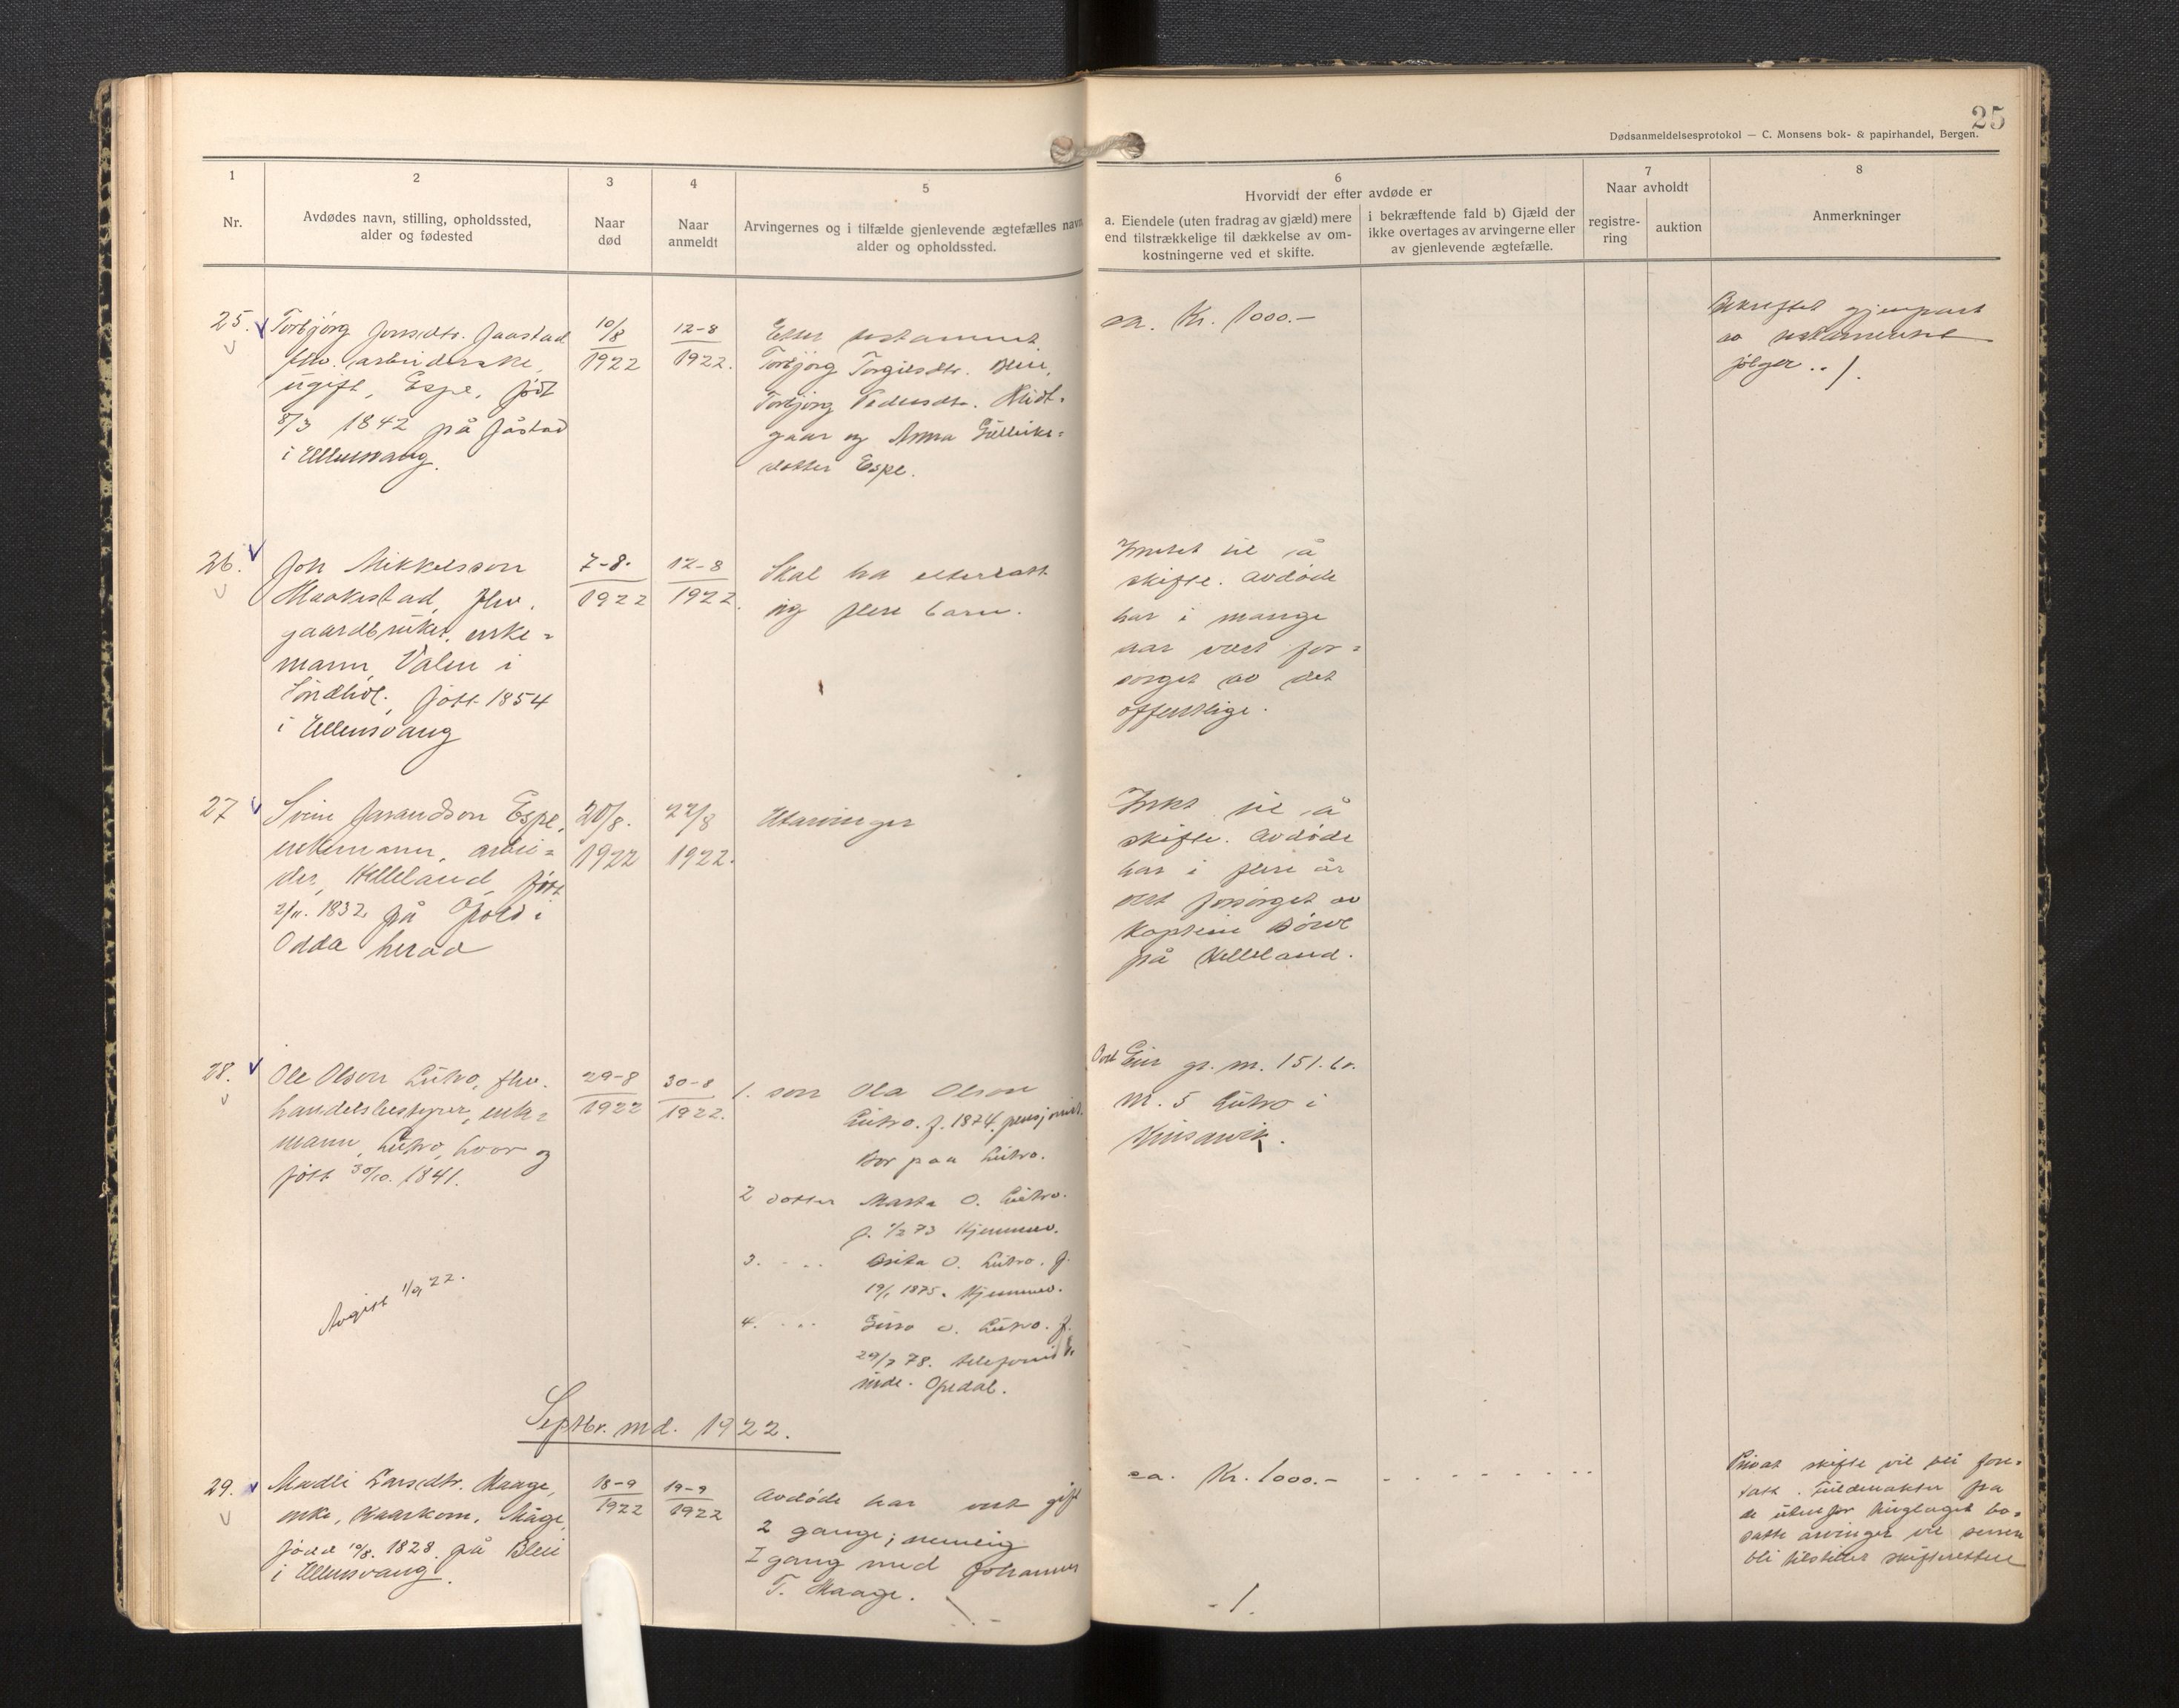 25
Dødsanmeldelsesprotokol — C. Monsens bok- & papirhandel, Bergen.
1
Nr.
2
Avdødes navn, stilling, opholdssted,
alder og fødested
3
Naar
død
4
Naar
anmeldt
5
Arvingernes og i tilfælde gjenlevende ægtefælles navn,
alder og opholdssted.
6
Hvorvidt der efter avdøde er
a. Eiendele (uten fradrag av gjæld) mere
end tilstrækkelige til dækkelse av om-
kostningerne ved et skifte.
i bekræftende fald b) Gjæld der
ikke overtages av arvingerne eller
av gjenlevende ægtefælle.
7
Naar avholdt
registre-
ring
auktion
8
Anmerkninger
25.
Torbjörg Jonsdtr. Jaastad
fhv. arbeiderske,
ugift, Espe, född
8/3 1842 på Jåstad
i Ellensvang.
10/8
1922
12-8
1922.
Etter testament.
Torbjörg Torgilsdtr. Bleie,
Torbjörg Pedersdtr. Midt-
gaar og Anna Gulleiks-
dotter Espe.
ca. Kr. 1000.-
Bekreftet gjenpart
av testamentet
følger ../.
26.
Jon Mikkelsson
Maakestad, fhv.
gaardbruker, enke-
mann, Valen i
Söndhol., fött 1854
i Ellensvang
7-8.
1922
12-8
1922.
Skal ha etterlatt
sig flere barn.
Intet til å
skifte. Avdöde
har i mange
aar vært for-
sörget av det
offentlige.
27
Svein Jarandson Espe,
enkemann, arbei-
der, Helleland, fött
2/11. 1832 på Opold i
Odda herad
20/8.
1922
22/8
1922.
Utarvinger
Intet til å
skifte. Avdöde
har i flere år
vert forsörget av
Kaptein Börve
på Helleland.
28.
Ole Olson Lutro, fhv.
handelsbestyrer, enke-
mann, Lutro, hvor og
fött 30/10. 1841.
29-8
1922
30-8
1922.
1. son Ola Olson
Lutro. f. 1874. pensjonist.
Bor paa Lutro.
2 dotter Marta O. Lutro.
f. 1/2 73 Hjemmev.
3. - .. Brita O. Lutro. f.
19/1 1875. Hjemmev.
4. - .. Guro O. Lutro. f.
29/7 78. telefonist-
inde. Opedal.
Eier gr. nr. 151. br.
nr. 5 Lutro i
Kinsarvik.
Avgitt 1/9 22.
Septbr. md. 1922.
29.
Madli Larsdtr. Maage,
enke, kaarkone, Måge,
född 10/8. 1828. på Bleie
i Ellensvang.
18-9
1922
19-9
1922
Avdöde har vert gift
2 gange; nemlig
I gang med Johannes
T. Maage.
ca. Kr. 1000.-
- /.
Privat skifte vil bli fore-
tatt. Fuldmakter fra
de utenfor tinglaget bo-
satte arvinger vil senere
bli tilstillet skifteretten